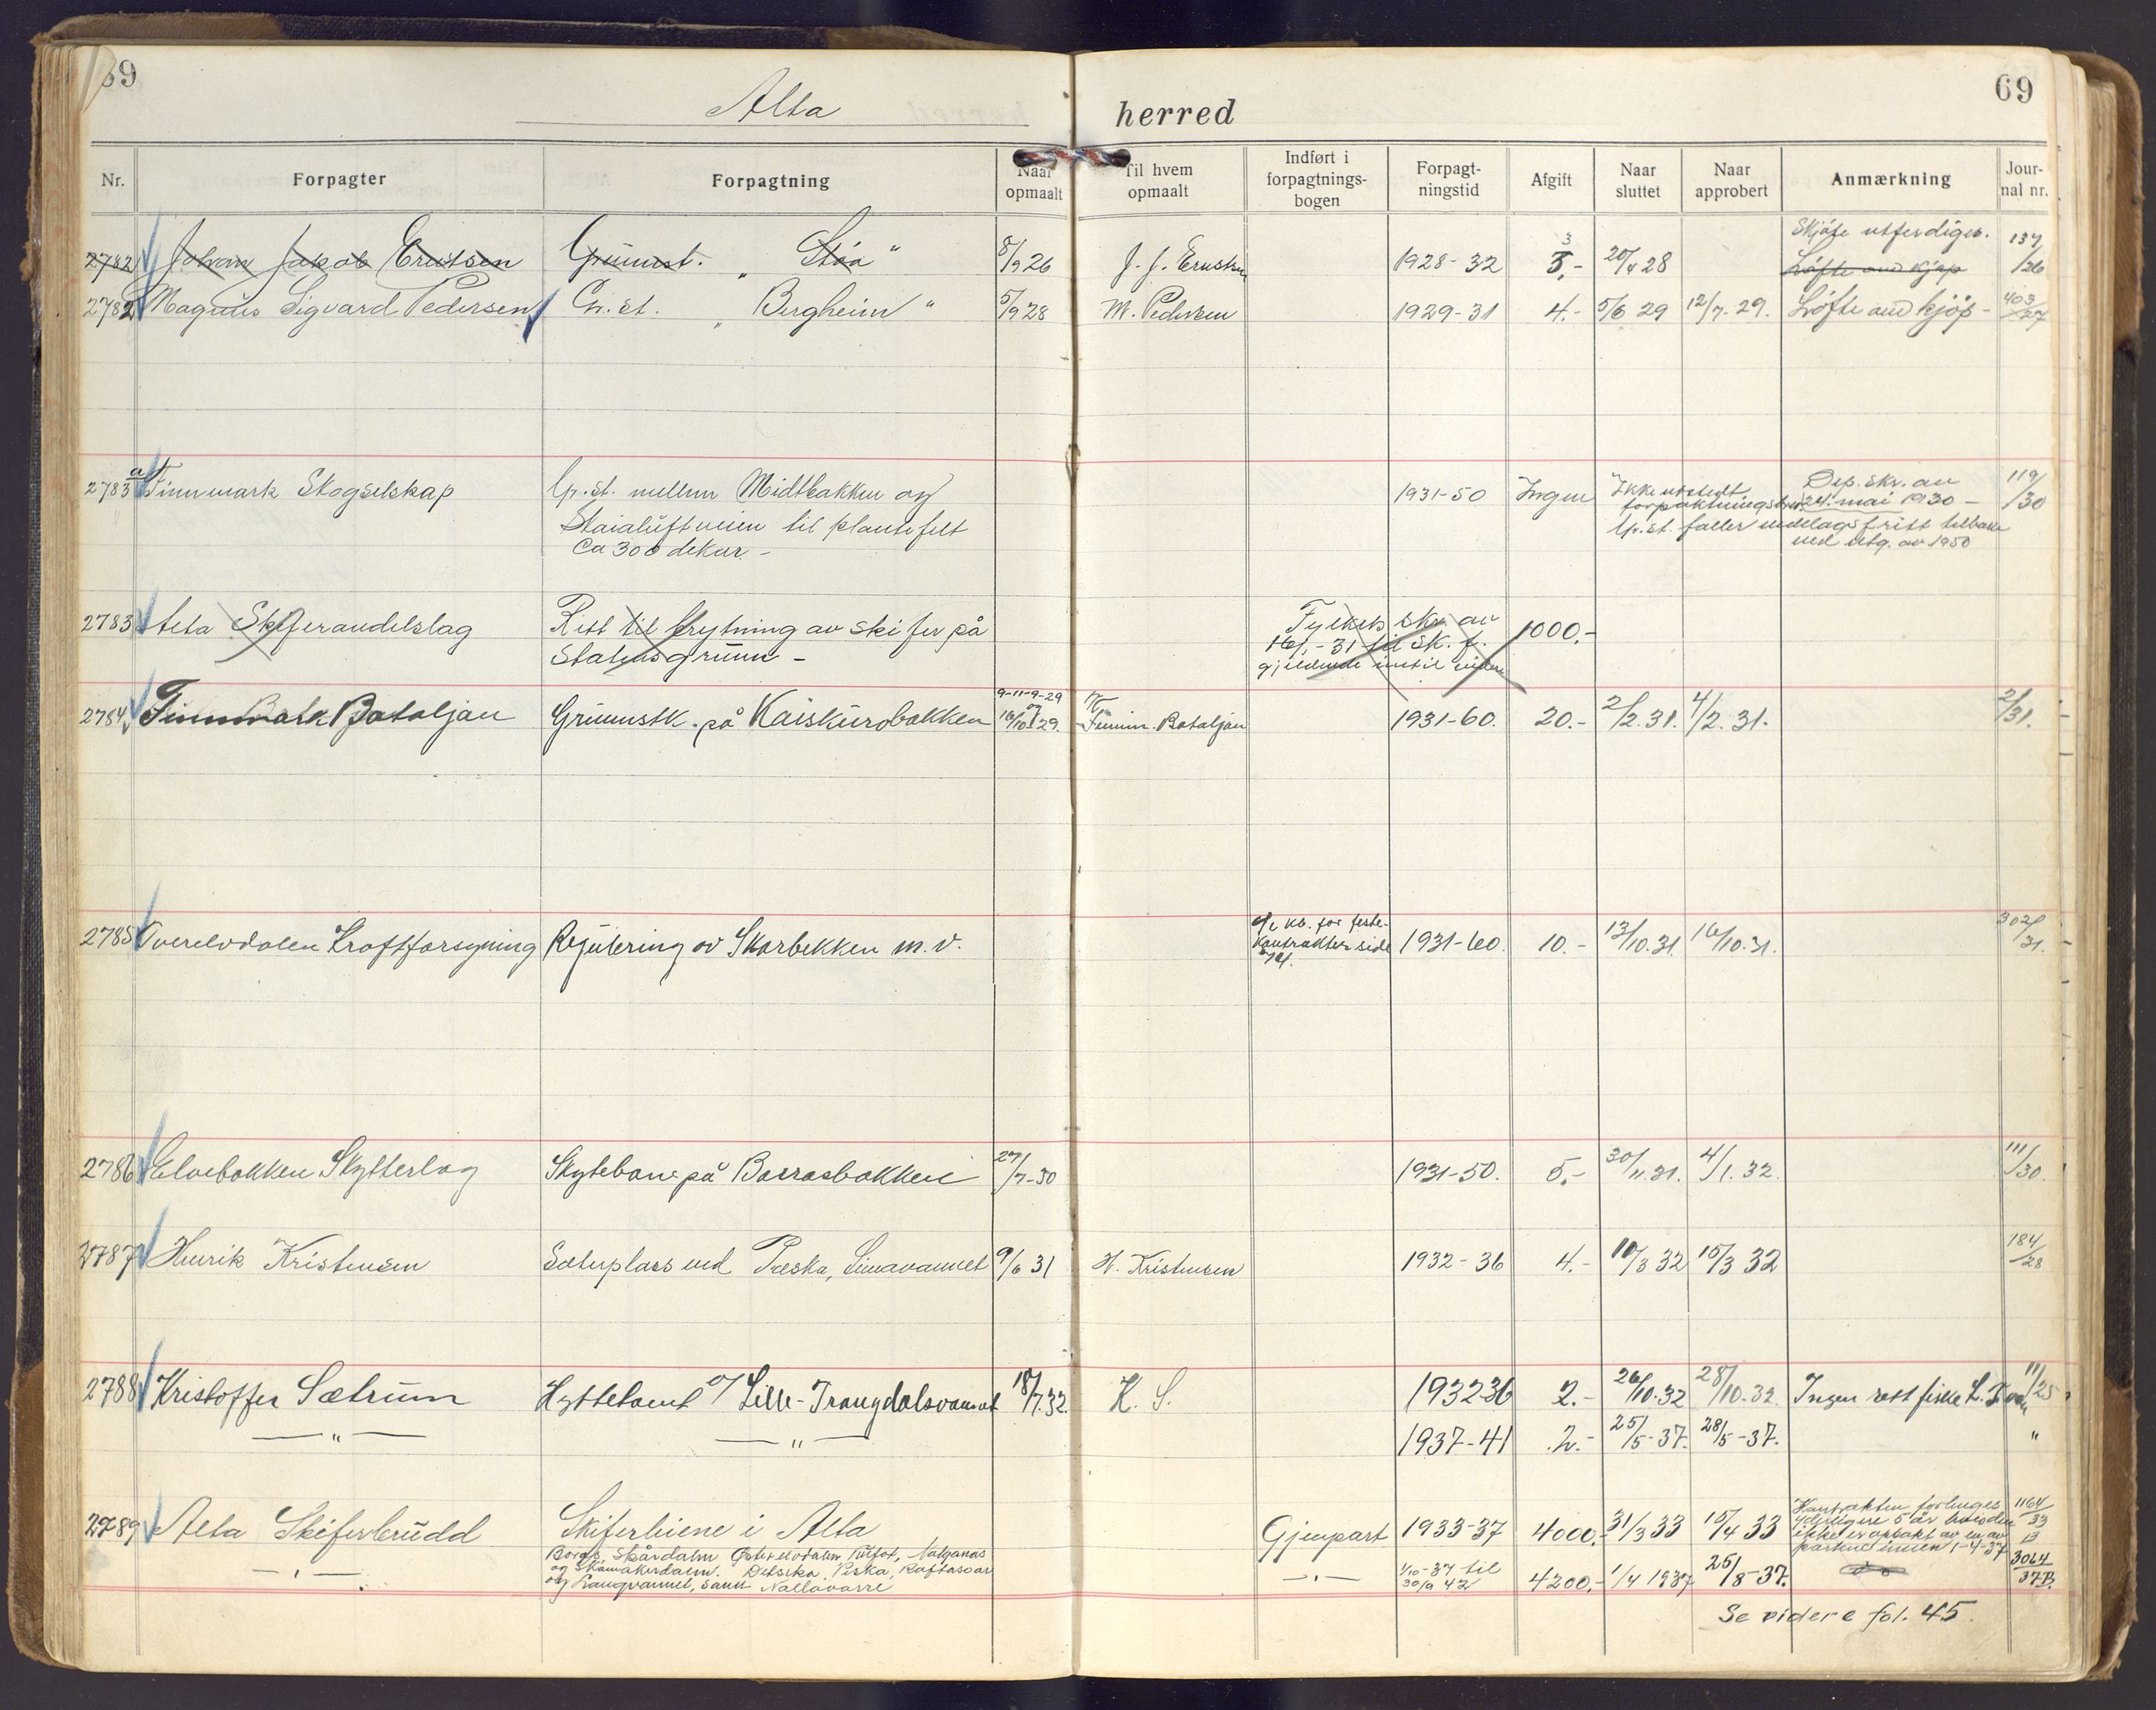 69 69
Alta herred
Nr. Forpagter Forpagtning Naar opmaalt Til hvem opmaalt Indført i forpagtnings-bogen Forpagt-ningstid Afgift Naar sluttet Naar approbert Anmærkning Jour-nal nr.
Skjøte utferdiges. 137
2782 Johan Jakob Erntsen Grunnst. „ Stoa “ 8/9 26 J. J. Erntsen 1928-32 3 5.- 20/4 28 Løfte om kjøp /26
2782 Magnus Sigvard Pedersen Gr. st. „ Bergheim “ 5/9 28 M. Pedersen 1929-31 4.- 5/6 29 12/7-29. Løfte om kjøp - 403/27
2783 a Finnmark Skogselskap Gr. st. mellem Midtbakken og 1931-50 Ingen Ikke utstedt Dep. skr. av 119/30
Skaialuftveien til plantefelt forpaktningsbrev. 24. mai 1930 -
Ca 300 dekar. - Gr. st. faller vedelagsfritt tilbake
ved utg. av 1950
2783 Alta Skiferandelslag Rett til brytning av skifer på Fylkets skr. av 1000.-
Statens grunn - 16/1-31 til Sk. f.
gjeldende inntil videre
2784 Finnmark Bataljon Grunnstk. på Kaiskurobakken 9-11-9-29 og 16/10 29. Finnm. Bataljon 1931-60. 20.- 2/2. 31. 4/2. 31. 2/31.
2785 Tverelvdalen Kraftforsyning Regulering av Skarbekken m.v. kb. for feste-kontrakter side 1931-60. 10.- 13/10.31. 16/10.31. 302/31.
2786 Elvebakken Skytterlag Skytebane på Borrasbakken 27/7-30 1931-50. 5.- 30/11.31. 4/1.32. 111/30.
2787 Henrik Kristensen Seterplass ved Pæska, 9/6 31 H. Kristensen 1932-36 4.- 10/3 32 15/3 32 184/28
2788 Kristoffer Sætrum Hyttetomt v/ Lille-Trangdalsvannet 18/7.32. K. S. 1932-36 2.- 26/10.32 28/10.32. Ingen rett fiske L. T. 11/25
— " — — " — 1937-41 2.- 25/5-37. 28/5-37. "
2789 Alta Skiferbrudd Skiferbruene i Alta Gjenpart 1933-37 4000.- 31/3 33 15/4 33 Kontrakten forlenges 1164/33 B
Skårdalen Østerelvdalen ytterligere 5 år hvis den
og Skamakerdalen. Detsika, Peska, ikke er opsakt av en av
partene innen 1-4-37
— " — og Langvannet, samt Nallavarre — " — 1/10-37 til 30/9 42 4200.- 1/4 1937 25/8-37. do 3064/37B.
Se videre fol. 45.